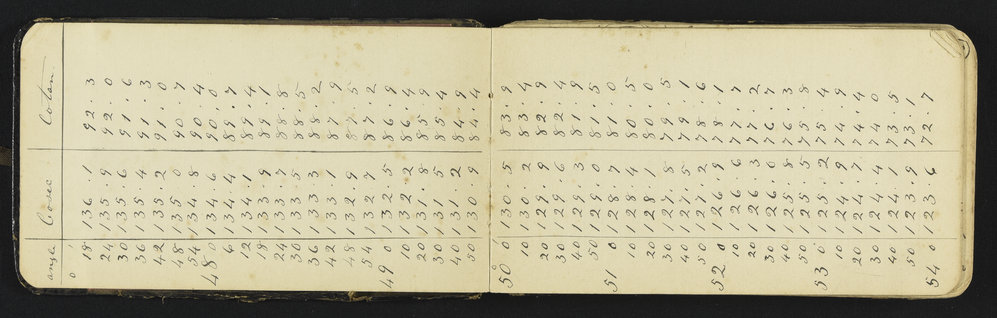 angle Cosec Cotan
° '
18 136.1 92.3
24 135.9 92.0
30 135.6 91.6
36 135.4 91.3
42 135.2 91.0
48 135.0 90.7
54 134.8 90.4
48 0 134.6 90.0
6 134.4 89.7
12 134.1 89.4
18 133.9 89.1
24 133.7 88.8
30 133.5 88.5
36 133.3 88.2
42 133.1 87.9
48 132.9 87.5
54 132.7 87.2
49 0 132.5 86.9
10 132.2 86.4
20 131.8 85.9
30 131.5 85.4
40 131.2 84.9
50 130.9 84.4
° '
50 0 130.5 83.9
10 130.2 83.4
20 129.9 82.9
30 129.6 82.4
40 129.3 81.9
50 129.0 81.5
51 0 128.7 81.0
10 128.4 80.5
20 128.1 80.0
30 127.8 79.5
40 127.5 79.1
50 127.2 78.6
52 0 126.9 78.1
10 126.6 77.7
20 126.3 77.2
30 126.0 76.7
40 125.8 76.3
50 125.5 75.8
53 0 125.2 75.4
10 124.9 74.9
20 124.7 74.4
30 124.4 74.0
40 124.1 73.5
50 123.9 73.1
54 0 123.6 72.7